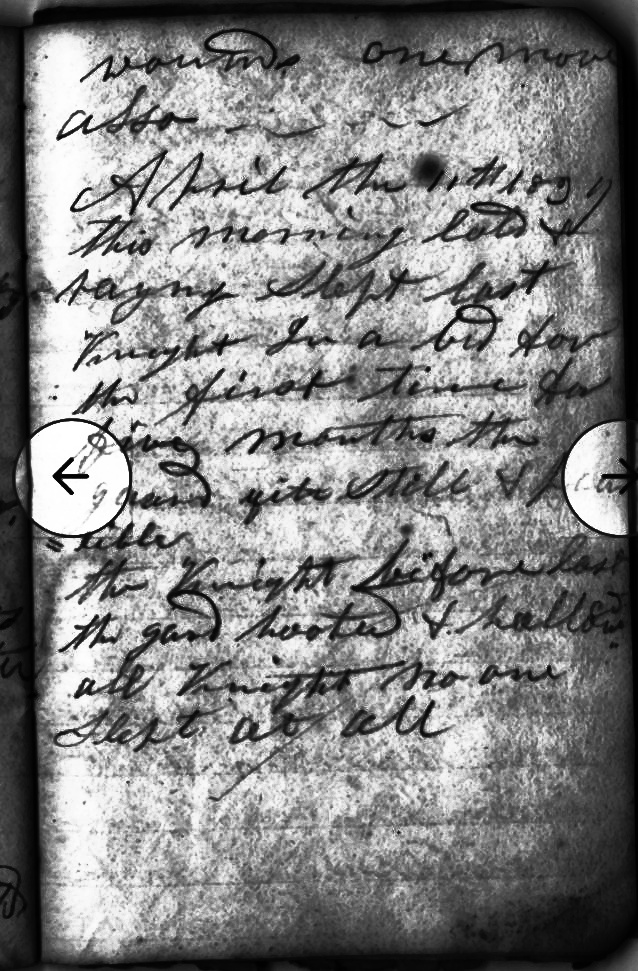 wounds one more
allso
April the 11th 189
this morning cold &
rayny Slept last
Knight In a bed for
the first time for
five months the
gaard qite Still & peac
= ible
the Knight before last
the gard hooted & hallow
all Knight no one
Slept at all